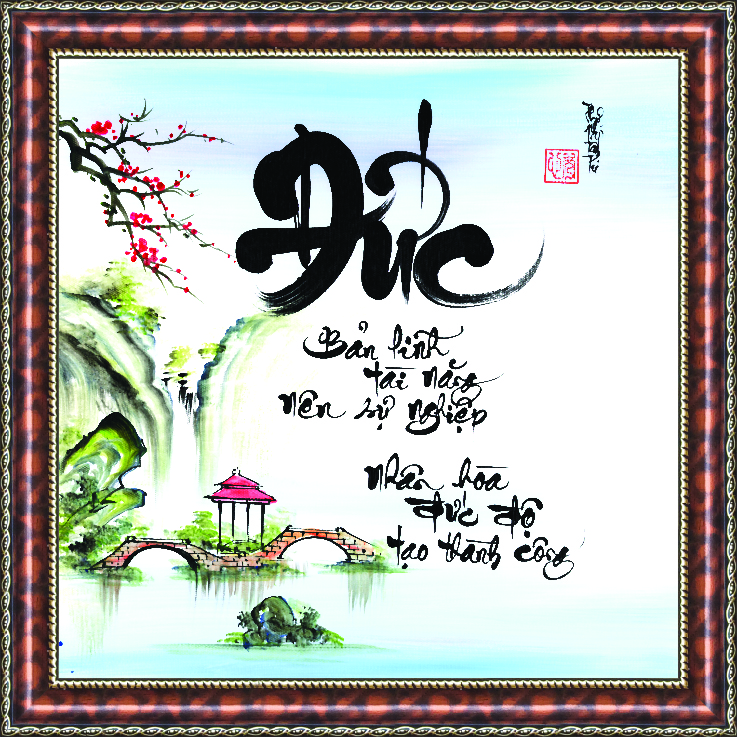 Đức
Bản lĩnh
tài năng
nên sự nghiệp
nhân hòa
đức độ
tạo thành công